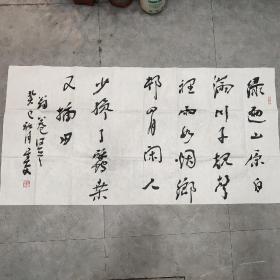 绿遍山原白
满川子规声
里雨如烟乡
村四月闲人
少才了蚕桑
又插田
翁卷
癸巳